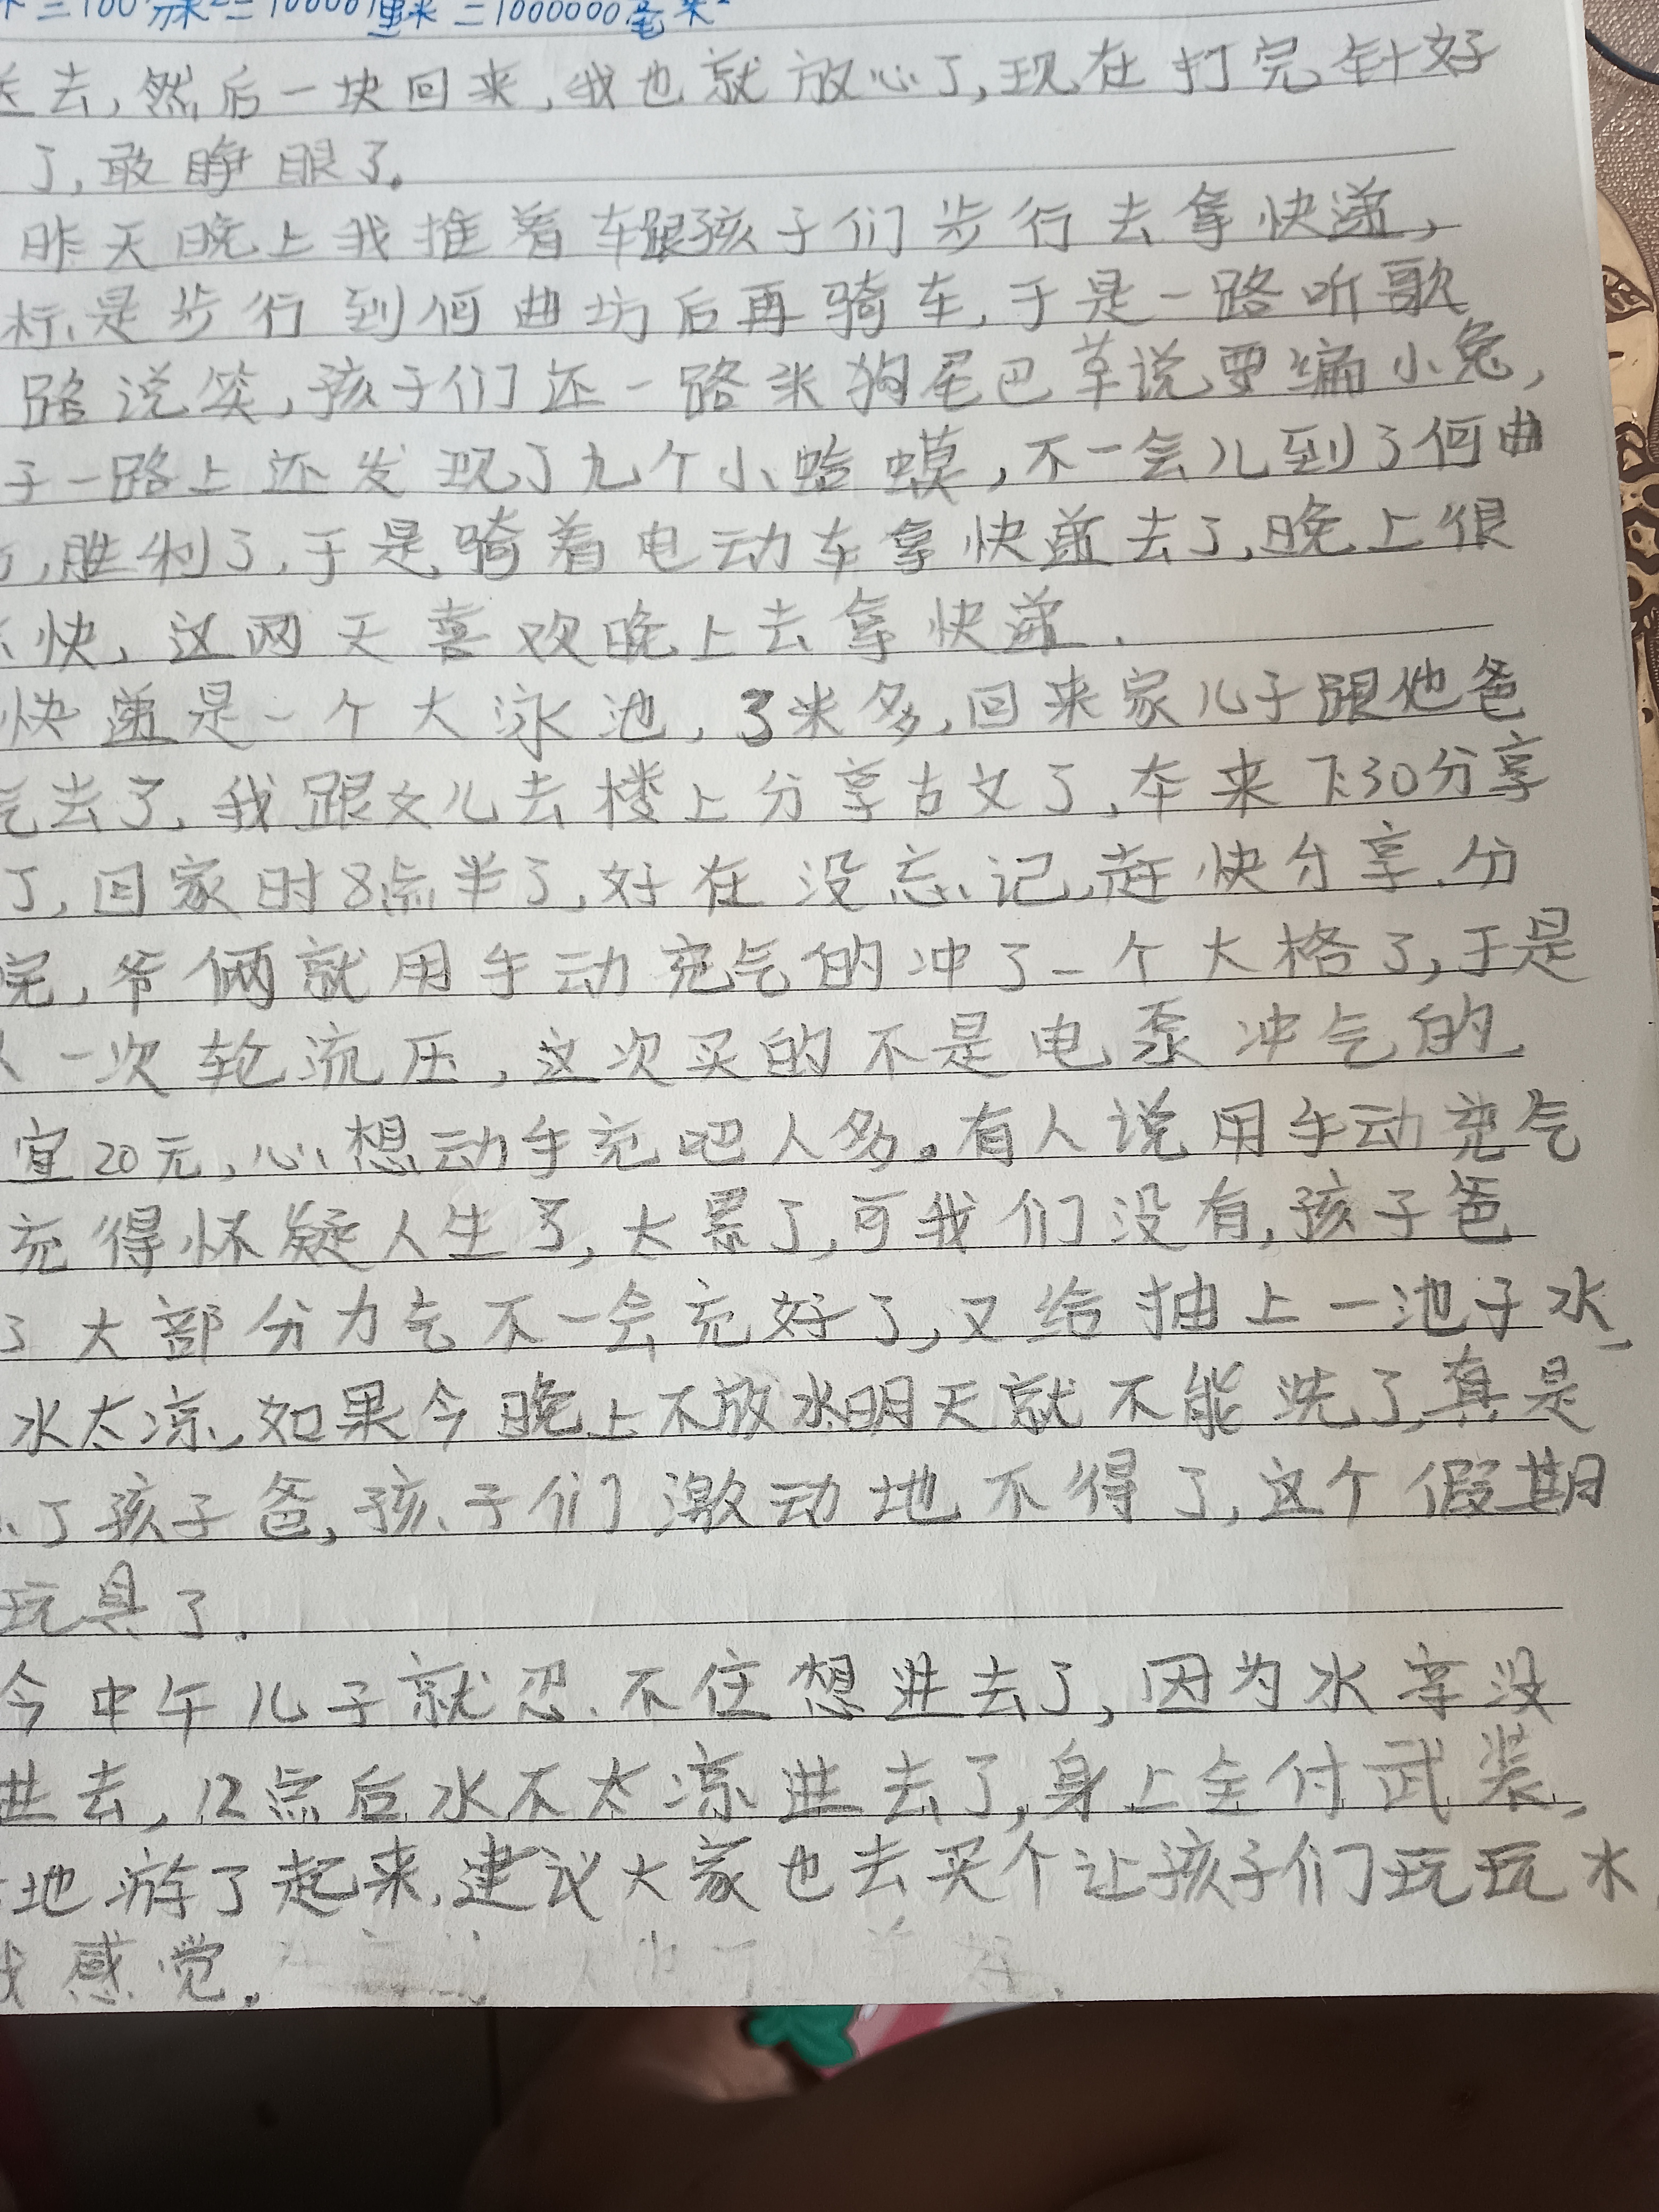 =100分米²=10000厘米²=1000000毫米²
去,然后一块回来,我也就放心了,现在打完针好
了,敢睁眼了。
昨天晚上我推着车跟孩子们步行去拿快递,
标是步行到何曲坊后再骑车,于是一路听歌
路说笑,孩子们还一路采狗尾巴草说要编小兔,
子一路上还发现了九个小蛤蟆,不一会儿到了何曲
,胜利了,于是骑着电动车拿快递去了,晚上很
快,这两天喜欢晚上去拿快递.
快递是一个大泳池,3米多,回来家儿子跟他爸
去了,我跟女儿去楼上分享古文了,本来7.30分享
了,回家时8点半了,好在没忘记,赶快分享.分
完,爷俩就用手动充气的冲了一个大格了,于是
一次轮流压,这次买的不是电泵冲气的
宜20元,心想动手充吧人多。有人说用手动充气
充得怀疑人生了,太累了,可我们没有,孩子爸
了大部分力气不一会充好了,又给抽上一池子水,
水太凉,如果今晚上不放水明天就不能洗了,真是
了孩子爸,孩子们激动地不得了,这个假期
玩具了.
今中午儿子就忍不住想进去了,因为水凉没
进去,12点后水不太凉进去了,身上全付武装,
地游了起来,建议大家也去买个让孩子们玩玩水,
感觉.